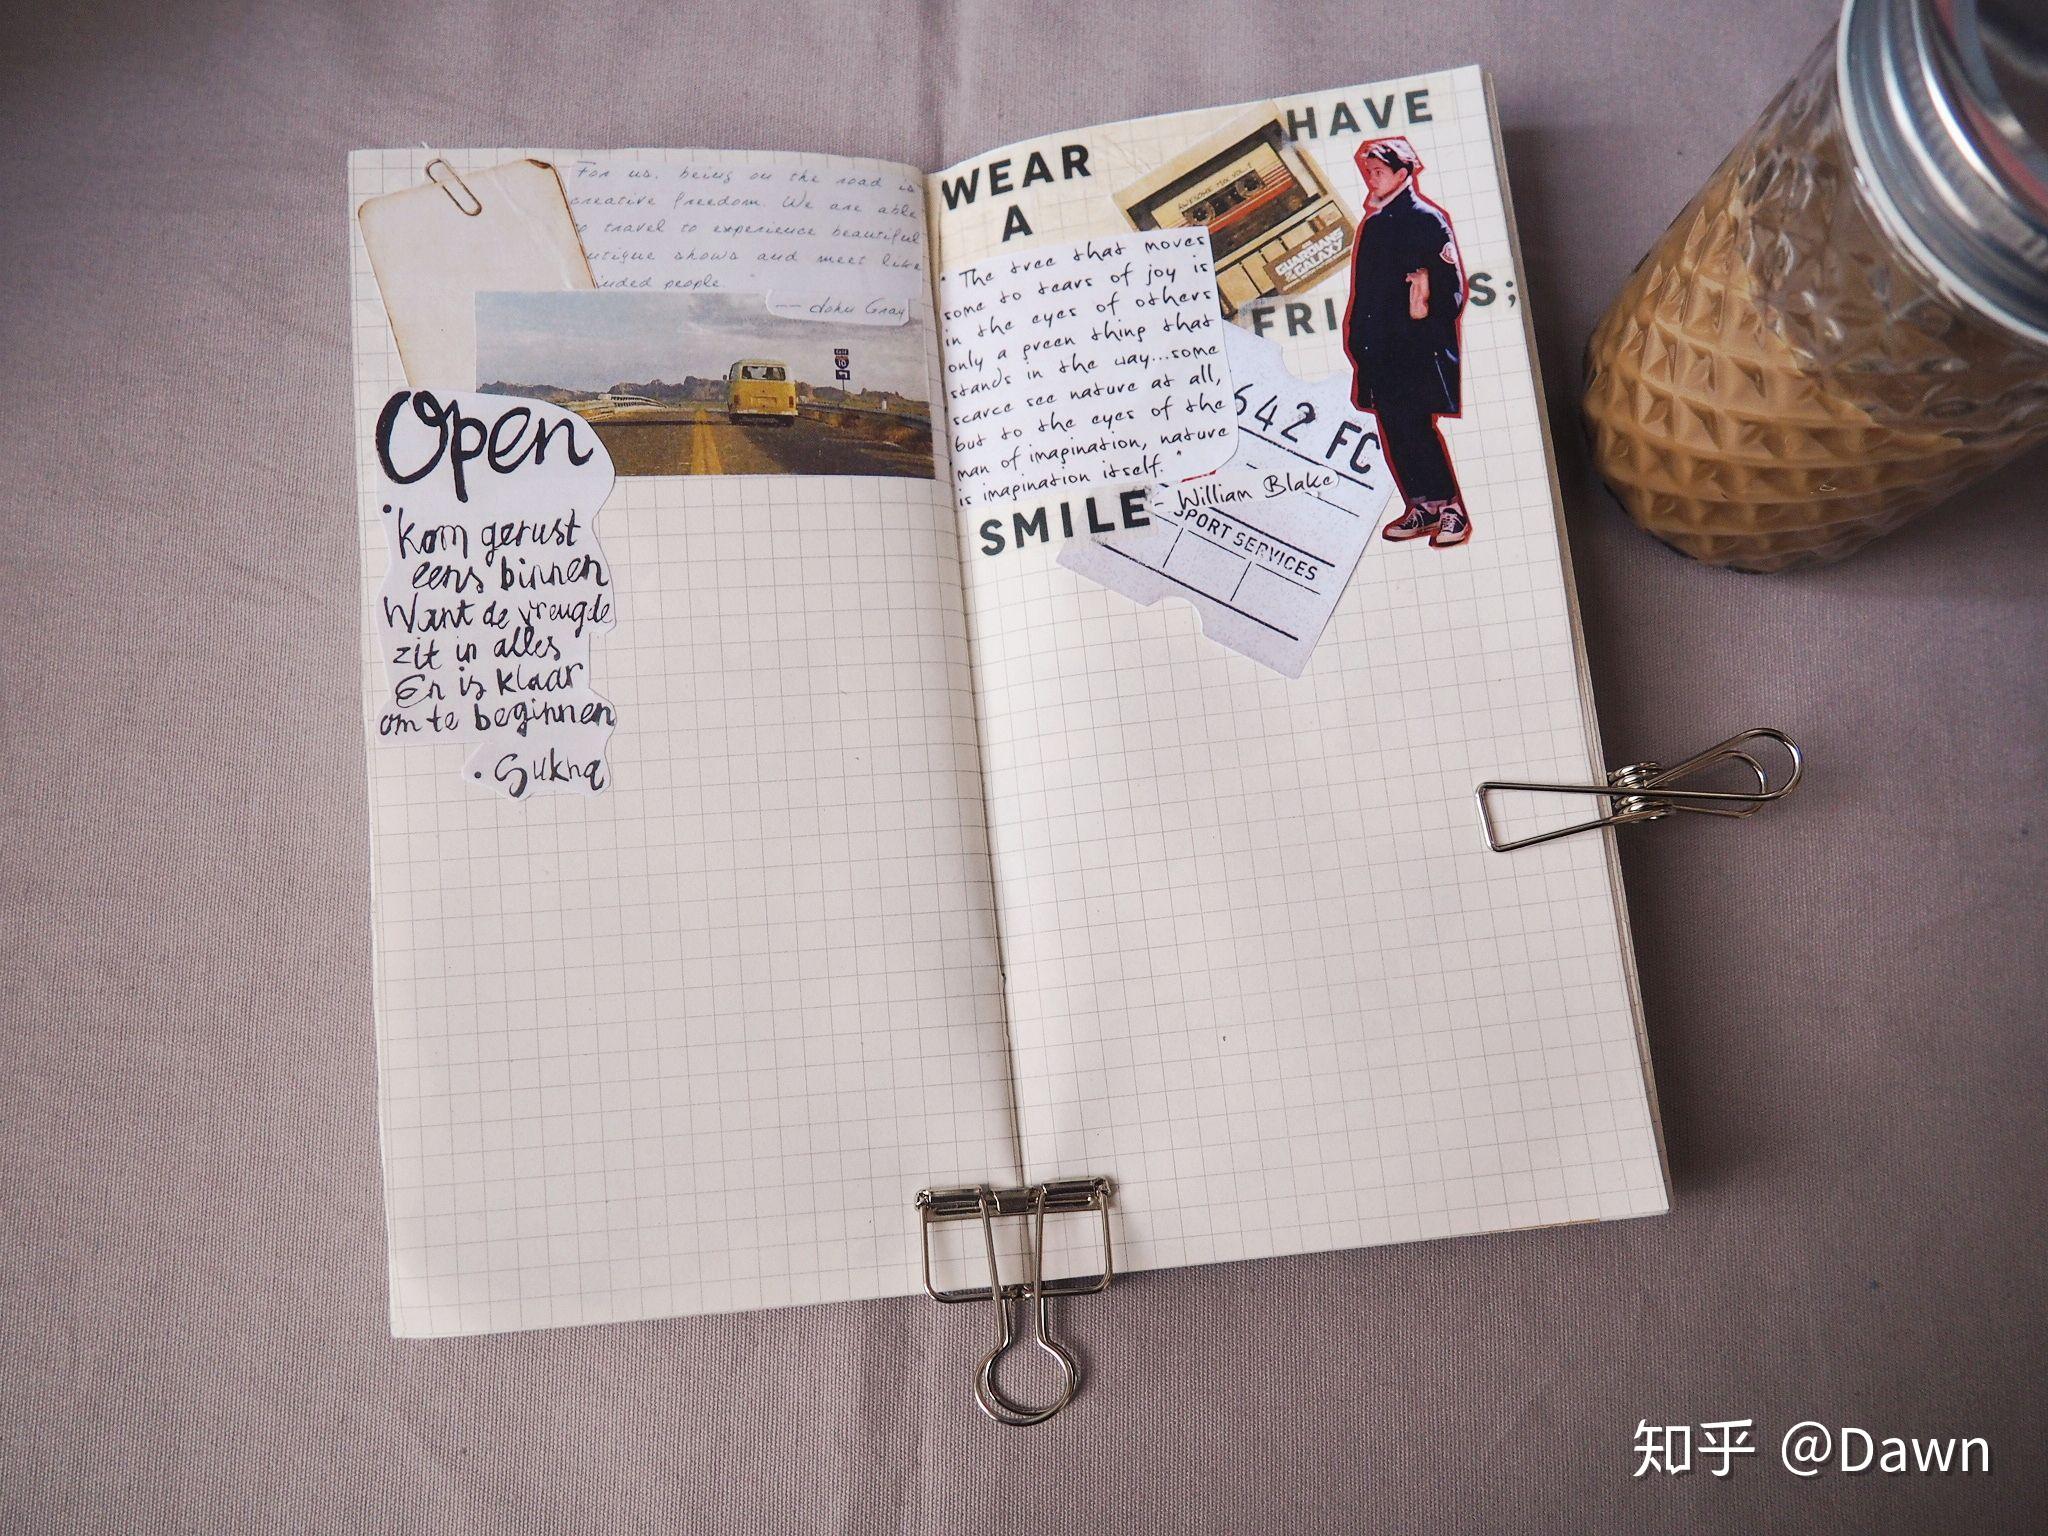 For us, being on the road is
creative freedom. We are able
to travel to experience beautiful
utique shows and meet like
inded people.
-- John Gray
Open
• Kom gerust
eens binnen
Want de vreugde
zit in alles
En is klaar
om te beginnen
• Sukna
WEAR
A
SMILE
HAVE
FRI
S;
AWESOME MIX VOL.
GUARDIANS
GALAXY
" The tree that moves
some to tears of joy is
in the eyes of others
only a green thing that
stands in the way...some
scarce see nature at all,
but to the eyes of the
man of imagination, nature
is imagination itself. "
- William Blake
642 FC
SPORT SERVICES
知乎 @Dawn